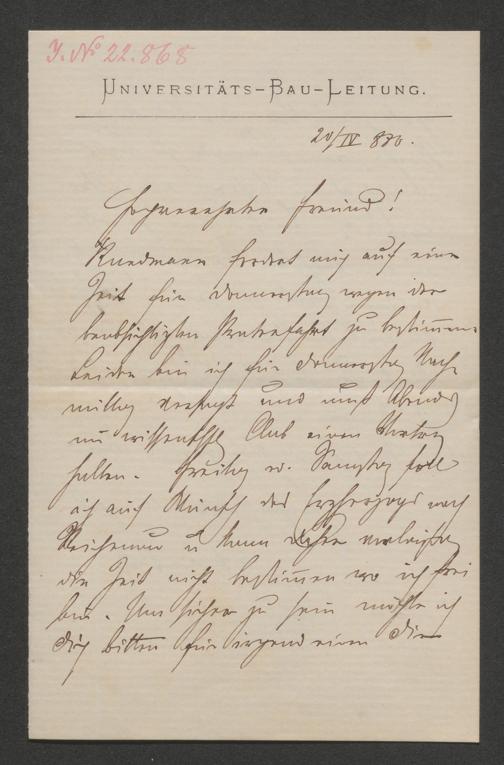 I. No 22.868
UNIVERSITÄTS-BAU-LEITUNG.
20/IV 880.
Hochverehrter Freund!
Kundmann fordert mich auf eine
Zeit für Donnerstag wegen der
beabsichtigten Praterfahrt zu bestimmen.
Leider bin ich für Donnerstag Nach-
mittag versagt und muß Abends
im wissenschftl Club einen Vortrag
halten. Freitag u. Samstag soll
ich auf Wunsch des Erzherzogs nach
Reichenau u kann daher
die Zeit nicht bestimmen wo ich frei
bin. Um sicher zu sein möchte ich
dich bitten für irgend einen